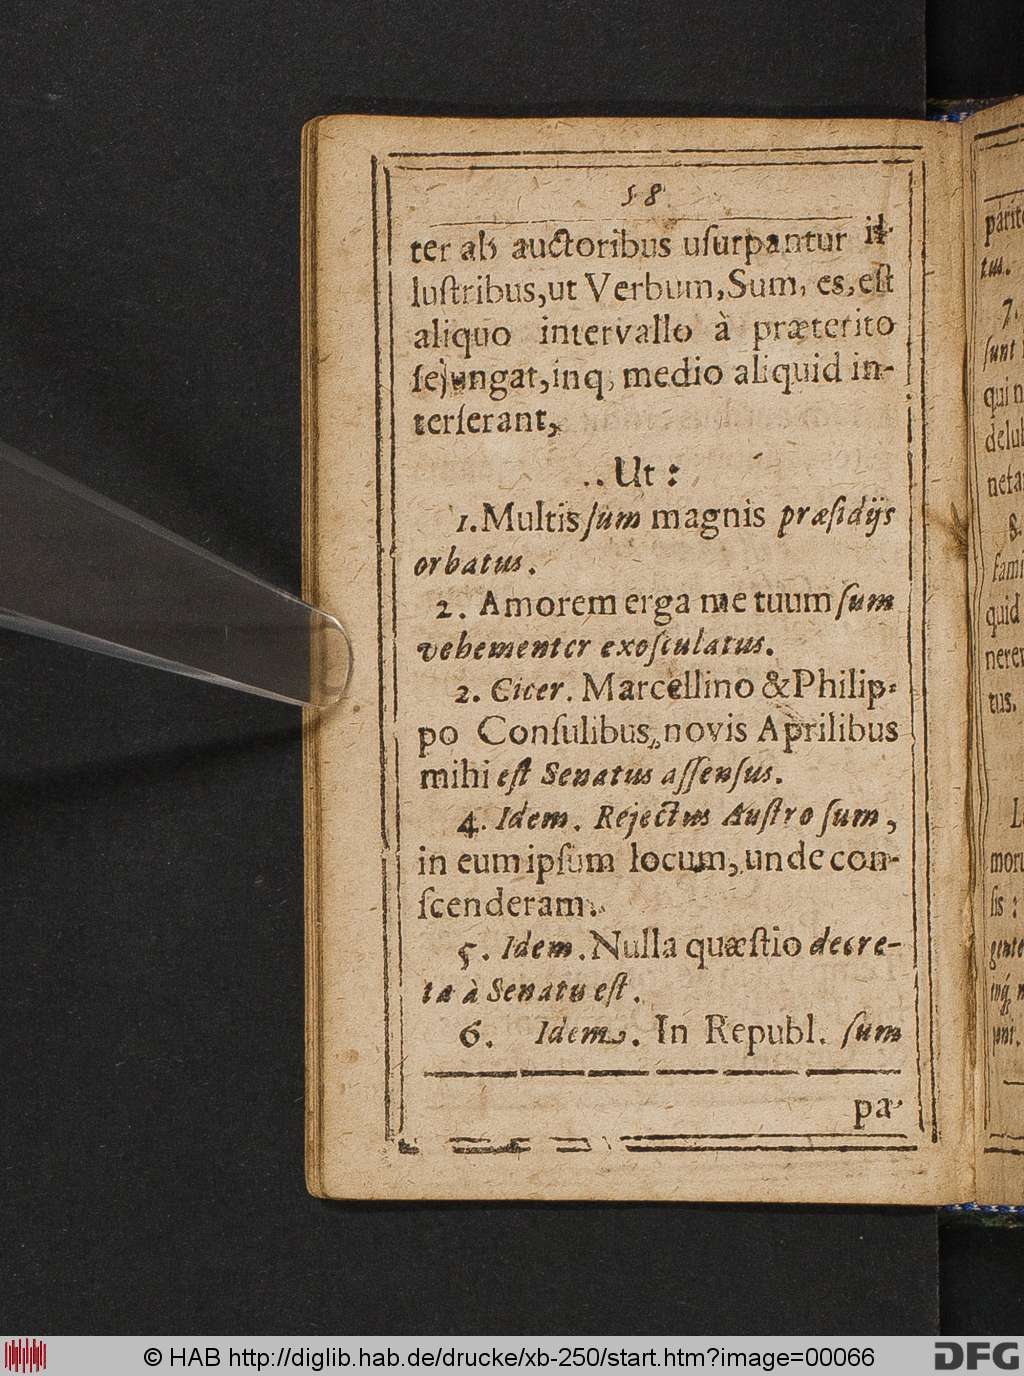 58
ter ab auctoribus uſurpantur il-
luſtribus, ut Verbum, Sum, es, eſt
aliquo intervallo à præterito
ſejungat, inq; medio aliquid in-
terſerant,
Ut:
1. Multis ſum magnis præſidijs
orbatus.
2. Amorem erga me tuum ſum
vehementer exoſculatus.
2. Cicer. Marcellino & Philip-
po Conſulibus, novis Aprilibus
mihi eſt Senatus aſſenſus.
4. Idem. Rejectus Auſtro ſum,
in eum ipſum locum, unde con-
ſcenderam.
5. Idem. Nulla quæſtio decre-
ta à Senatu eſt.
6. Idem. In Republ. ſum
pa-
tus.
7.
ſunt
qui n
&
tus.
ſis:
© HAB http://diglib.hab.de/drucke/xb-250/start.htm?image=00066
DFG